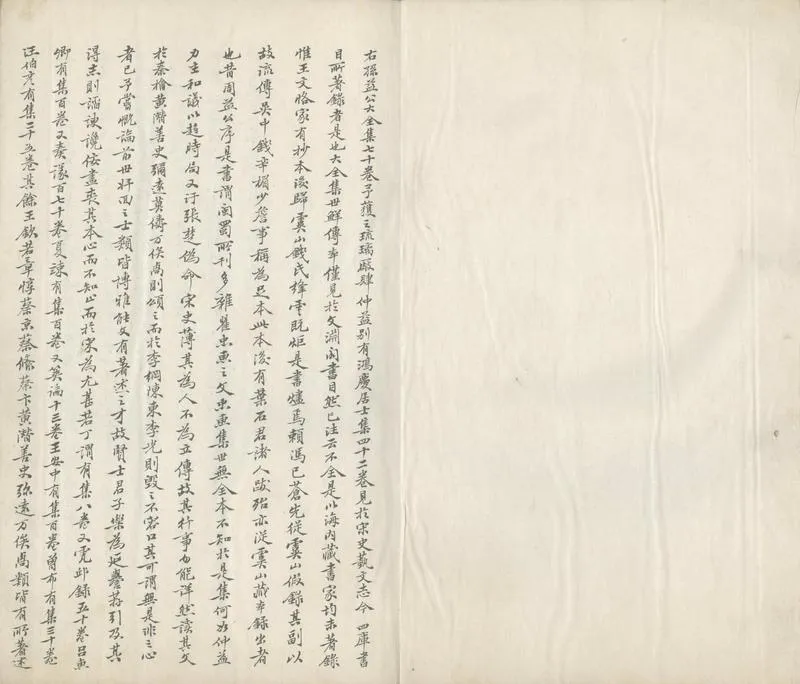 右孫益公大全集七十卷予獲之琉璃廠肆仲益別有鴻慶居士集四十二卷見於宋史藝文志今四庫書
目所著錄者是也大全集世鮮傳本僅見於文淵閣書目然已注云不全是以海內藏書家均未著錄
惟王文恪家有抄本後歸虞山錢氏絳雲既炬是書燼焉賴馮已蒼先從虞山假錄其副以
故流傳吳中錢辛楣少詹事稱為足本此本後有葉石君諸人跋殆亦從虞山藏本錄出者
也昔周益公序是書謂閩蜀所刊多雜瞿忠惠之文忠惠集世無全本不知於是集何如仲益
力主和議以趨時局又汙張楚偽命宋史薄其為人不為立傳故其行事勿能詳然讀其文
於秦檜黃潛善史彌遠莫儔万俟卨則頌之而於李綱陳東李光則毀之不容口其可謂無是非之心
者已予嘗慨論前世奸回之士類皆博雅能文有著述之才故賢士君子樂為延譽薦引及其
得志則諂諛讒佞盡喪其本心而不知止而於宋為尤甚若丁謂有集八卷又虎邱錄五十卷呂惠
卿有集百卷又奏議百七十卷夏竦有集百卷又策論十三卷王安中有集百卷曾布有集三十卷
汪伯彥有集二十五卷其餘王欽若章惇蔡京蔡絛蔡卞黃潛善史彌遠万俟卨類皆有所著述